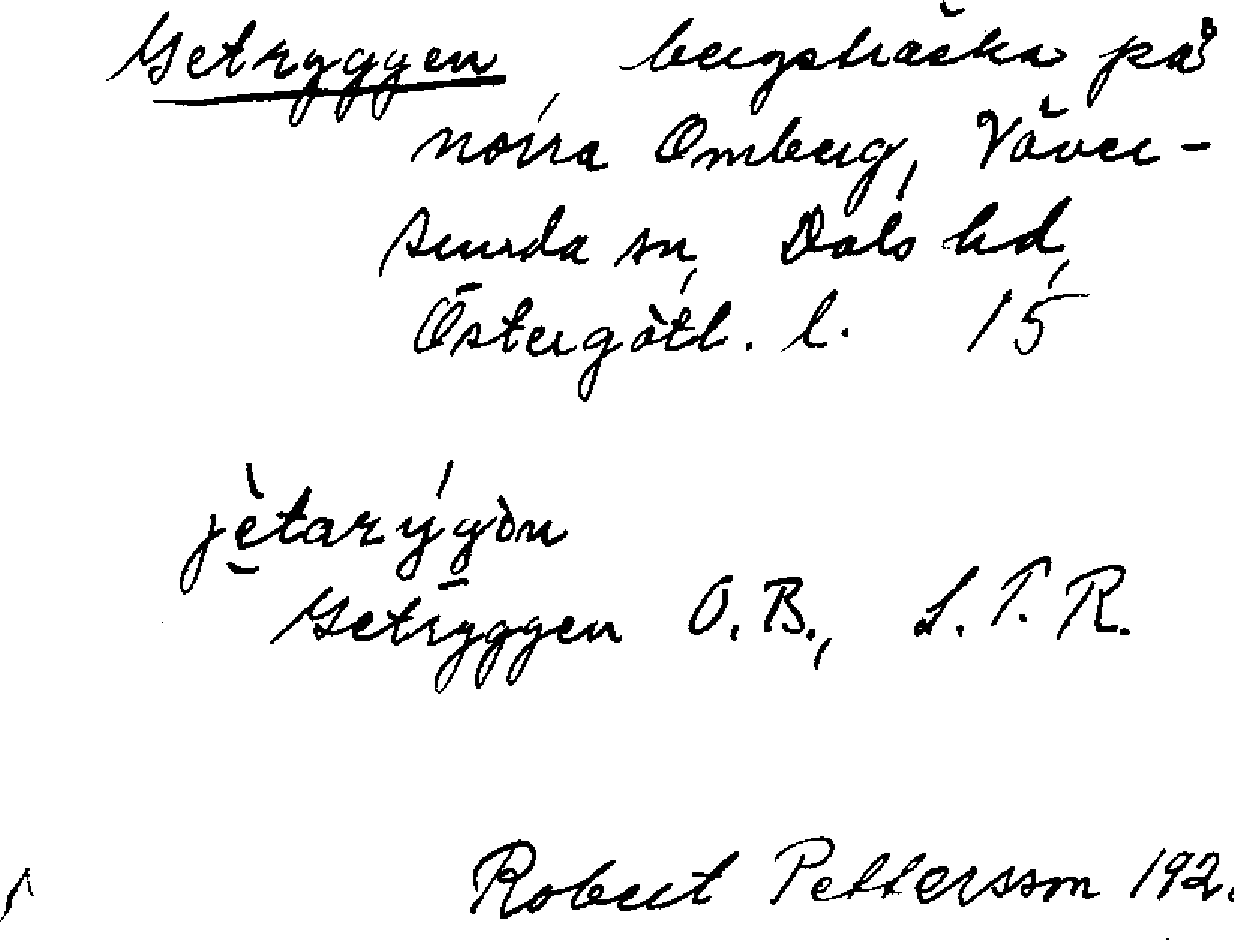 Getryggen bergsträcka på
norra Omberg, Väver-
sunda sn, Dals hd,
Östergötl. l. 15
jètarýgən
Getryggen O.B., S.T.R.
Robert Pettersson 192